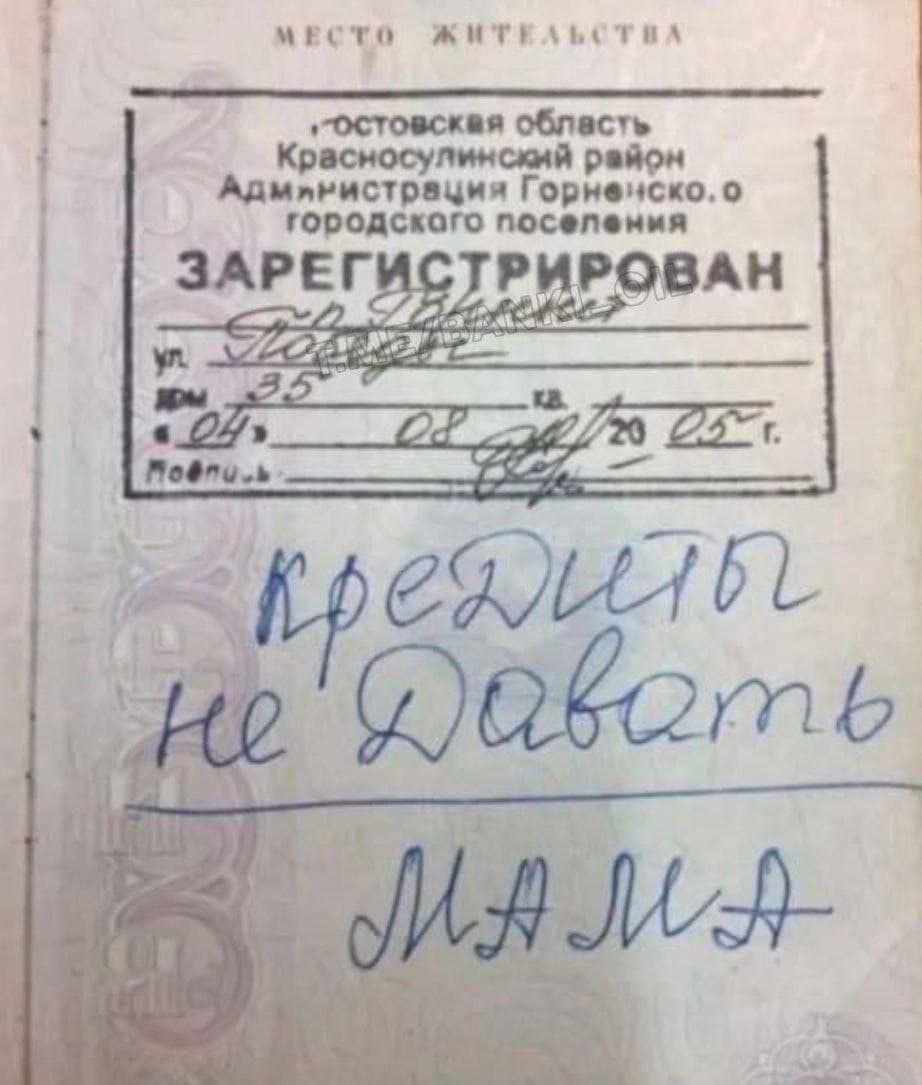 МЕСТО ЖИТЕЛЬСТВА
Ростовская область
Красносулинский район
Администрация Горненского
городского поселения
ЗАРЕГИСТРИРОВАН
T.ME/BANKI_OIL
ул.
дом 35 кв.
« 04 » 08 20 05 г.
Подпись
кредиты
не давать
МАМА